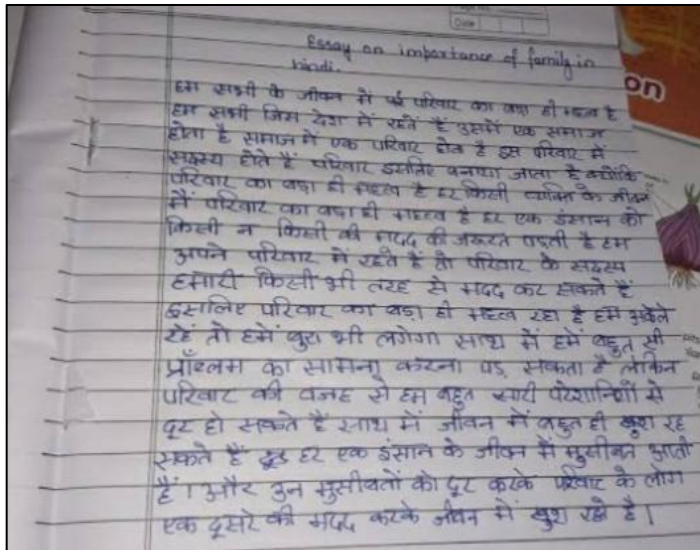 Date
Essay on importance of family in
hindi.
on
हम सभी के जीवन में परिवार का बड़ा ही महत्व है
हम सभी जिस देश में रहते हैं उसमें एक समाज
होता है समाज में एक परिवार होता है इस परिवार में
सदस्य होते हैं परिवार इसलिए बनाया जाता है क्योंकि
परिवार का बड़ा ही महत्व है हर किसी व्यक्ति के जीवन
में परिवार का बड़ा ही महत्व है हर एक इंसान को
किसी न किसी की मदद की जरूरत पड़ती है हम
अपने परिवार में रहते हैं तो परिवार के सदस्य
हमारी किसी भी तरह से मदद कर सकते हैं
इसलिए परिवार का बड़ा ही महत्व रहा है हम अकेले
रहें तो हमें बुरा भी लगेगा साथ में हमें बहुत सी
प्रॉब्लम का सामना करना पड़ सकता है लेकिन
परिवार की वजह से हम बहुत सारी परेशानियों से
दूर हो सकते हैं साथ में जीवन में बहुत ही खुश रह
सकते हैं हर एक इंसान के जीवन में मुसीबत आती
हैं। और उन मुसीबतों को दूर करके परिवार के लोग
एक दूसरे की मदद करके जीवन में खुश रहते है।